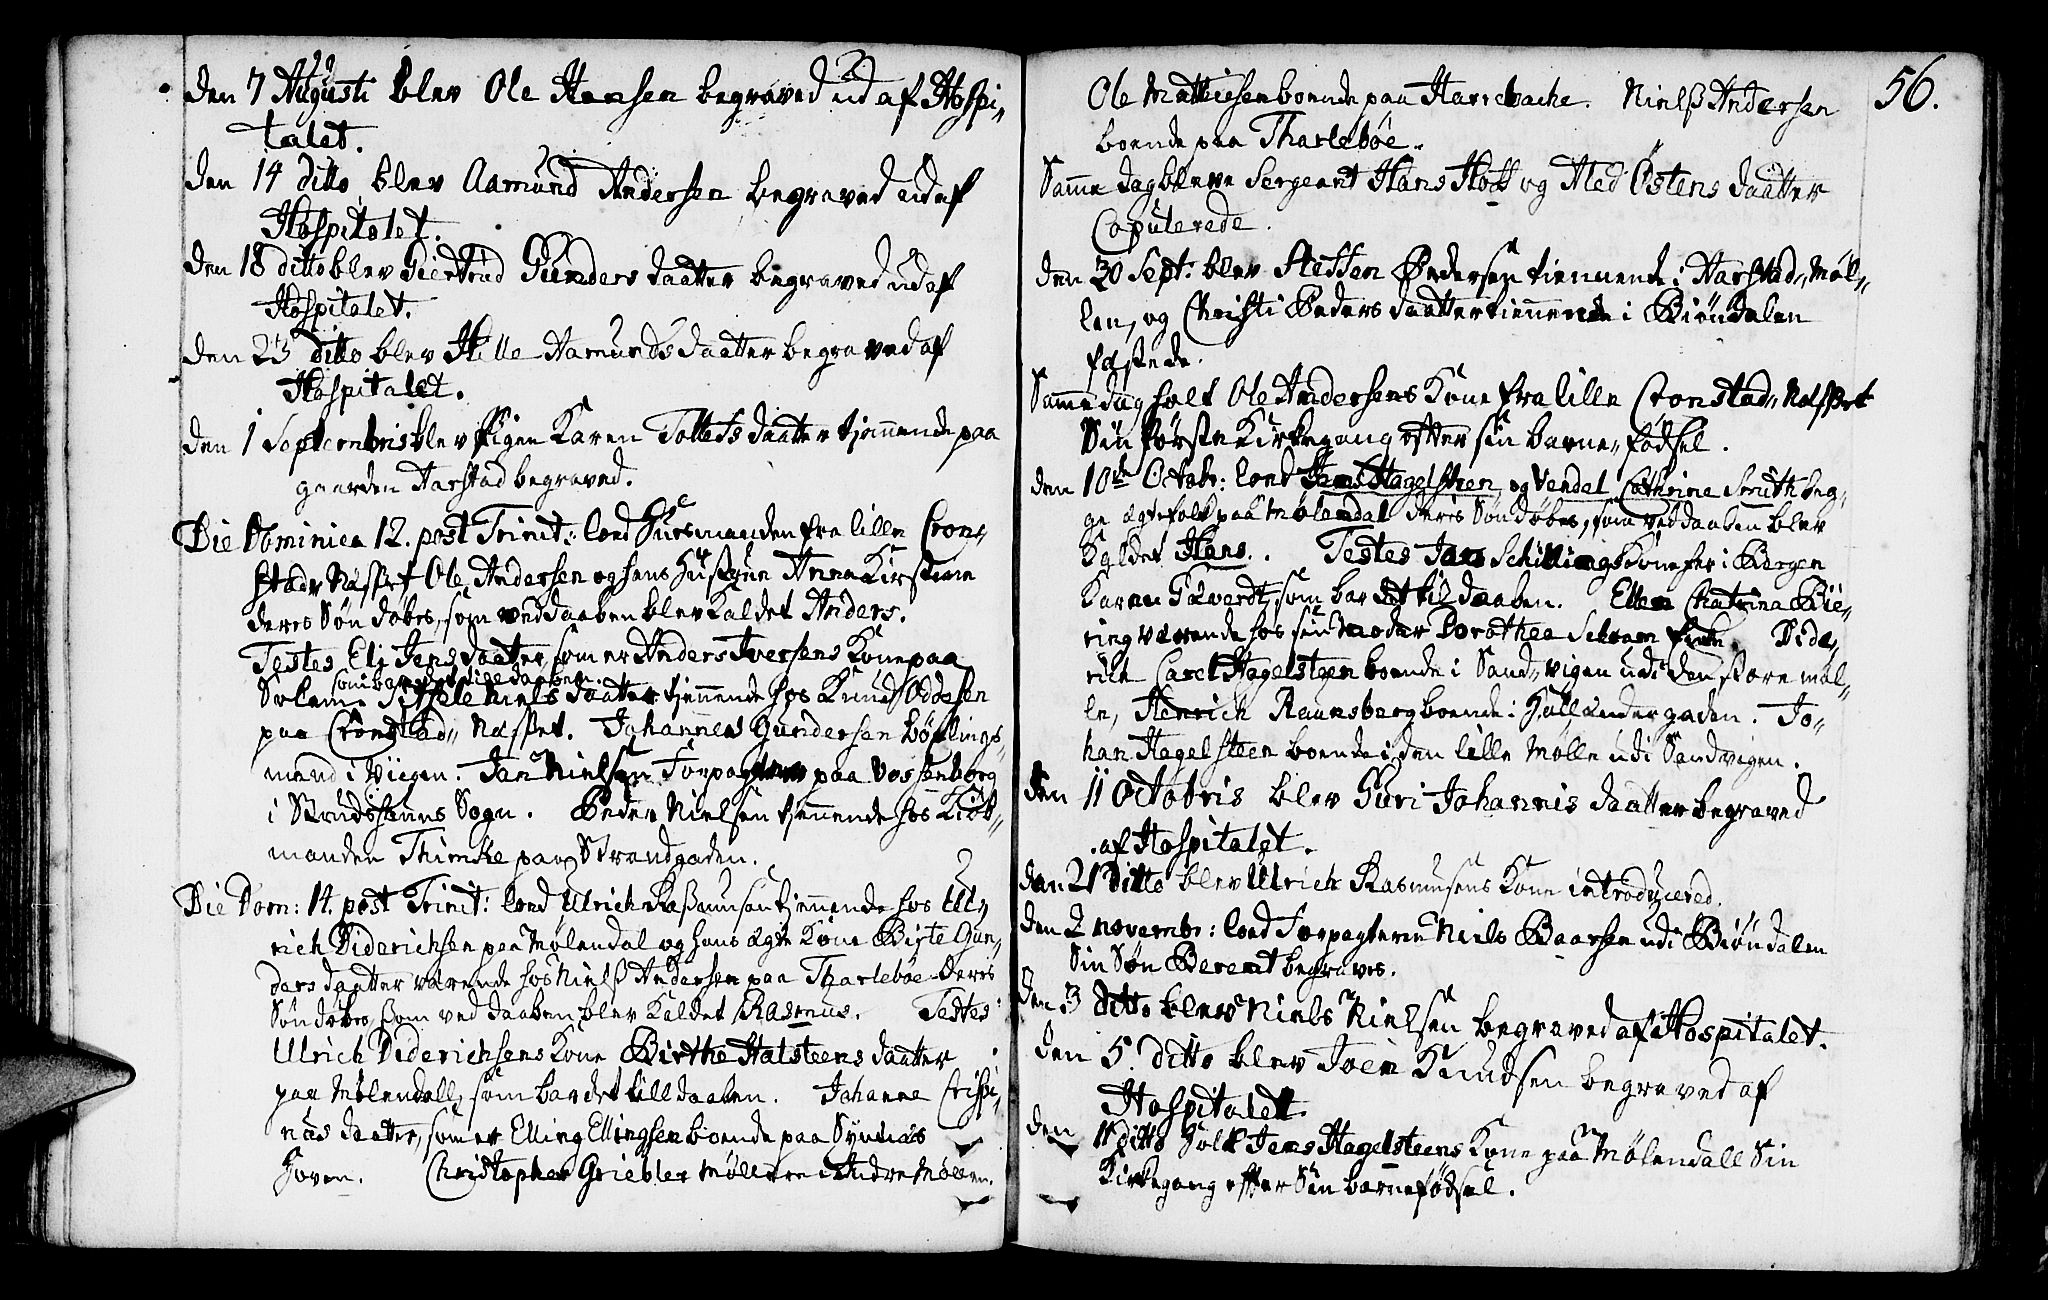 den 7 Augusti blev Ole Hansen begraved ud af Hospi-
talet.
den 14 ditto blev Aamund Andersen begraved ud af
Hospitalet.
den 18 ditto blev Giertrud Gunders daatter begraved ud af
Hospitalet.
den 23 ditto blev Hille Aamunds daatter begraved af
Hospitalet.
den 1 Septembris blev Pigen Karen Tollefs daatter tjennende paa
gaarden Aarstad begraved.
Die Dominica 12. post Trinit: loed Huusmanden fra lille Cron-
stads Næsset Ole Andersen og hans Hustrue Anna Kirstine
deres Søn døbes, som ved daaben blev kaldet Anders.
Testes Eli Jens daatter, som er Anders Iversens Kone paa
som bar det till daaben.
Solem Sitzele Niels daatter tjennende hos Knud Oddesen
paa Cronstad Næsset. Johannes Gundersen bøxlings-
mand i Wiigen. Jan Nielsen Forpagter paa Vossenborg
i Strudshavns Sogn. Peder Nielsen tjennende hos Kiøb-
manden Thimke paa Strandgaden.
Die Dom: 14. post Trinit: loed Ulrich Rasmusen tjennende hos Ul-
rich Diderichsen paa Mølendal og hans ægte Kone Birte Gun-
ders daatter værende hos Nielß Andersen paa Tharlebøe deres
Søn døbes, som ved daaben blev kaldet Rasmus. Testes
Ulrich Diderichsens Kone Birthe Halsteens daatter
paa Mølendall, som bar det till daaben. Johanne Crispi-
nus daatter, som er Elling Ellingsen boende paa Synnæs
Hoven. Christopher Griebler Møllere i Andre Møllen.
56.
Ole Mathiesen boende paa Harrebache. Nielß Andersen
boende paa Tharlebøe.
Samme dag bleve Sergeant Hans Hock og Aled Østens daatter
Copulerede.
den 30 Sept: blev Steffen Pedersen tiennende i Aarstad Møl-
len, og Christi Peders daatter tiennende i Biøndalen
fæstede.
Samme dag holt Ole Andersens Kone fra lille Cronstad Næsset
Sin første Kirkegang efter sin barne-fødsel.
den 10de Octobr: loed Jens Hagelsteen og Vendel Cathrine Smith beg-
ge ægtefolk paa Mølendal deres Søn døbes, som ved daaben blev
kaldet Hans. Testes Jan Schillings Kone her i Bergen
Karen Giæverdt, som bar det til daaben. Ellen Chatrina Bie-
ring værende hos sin Moder Dorothea Schram Enke. Dide-
rik Carel Hagelsteen boende i Sandvigen udi den store møl-
le, Henrich Raunsberg boende i Hollændergaden. Jo-
han Hagelsteen boende i den lille Mølle udi Sandvigen.
den 11 Octobris blev Guri Johannis daatter begraved
af Hospitalet.
den 21 Ditto blev Ulrich Rasmusens Kone introduzered.
den 2 novembr: loed Forpagteren Niels Baarsen udi Biøndalen
Sin Søn Berent begraves.
den 3 ditto blev Niels Nielsen begraved af Hospitalet.
den 5. ditto blev Joen Knudsen begraved af
Hospitalet.
den 11 ditto holt Jens Hagelsteens Kone paa Mølendall Sin
Kirkegang efter Sin barnefødsel.